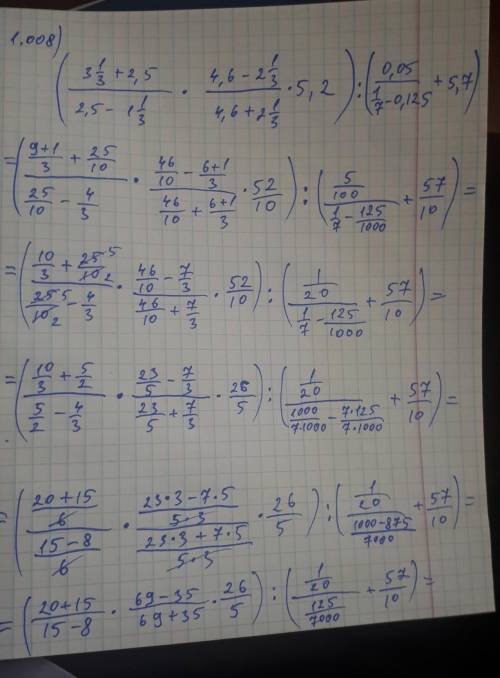 1.008)
((3 1/3 + 2,5)/(2,5 - 1 1/3) · (4,6 - 2 1/3)/(4,6 + 2 1/3) · 5,2) : (0,05/(1/7 - 0,125) + 5,7)
= (((9+1)/3 + 25/10)/(25/10 - 4/3) · (46/10 - (6+1)/3)/(46/10 + (6+1)/3) · 52/10) : ((5/100)/(1/7 - 125/1000) + 57/10) =
= ((10/3 + 25 5/10 2)/(25 5/10 2 - 4/3) · (46/10 - 7/3)/(46/10 + 7/3) · 52/10) : ((1/20)/(1/7 - 125/1000) + 57/10) =
= ((10/3 + 5/2)/(5/2 - 4/3) · (23/5 - 7/3)/(23/5 + 7/3) · 26/5) : ((1/20)/(1000/7·1000 - 7·125/7·1000) + 57/10) =
= (((20+15)/6)/((15-8)/6) · ((23·3-7·5)/5·3)/((23·3+7·5)/5·3) · 26/5) : ((1/20)/((1000-875)/7000) + 57/10) =
= ((20+15)/(15-8) · (69-35)/(69+35) · 26/5) : ((1/20)/(125/7000) + 57/10) =